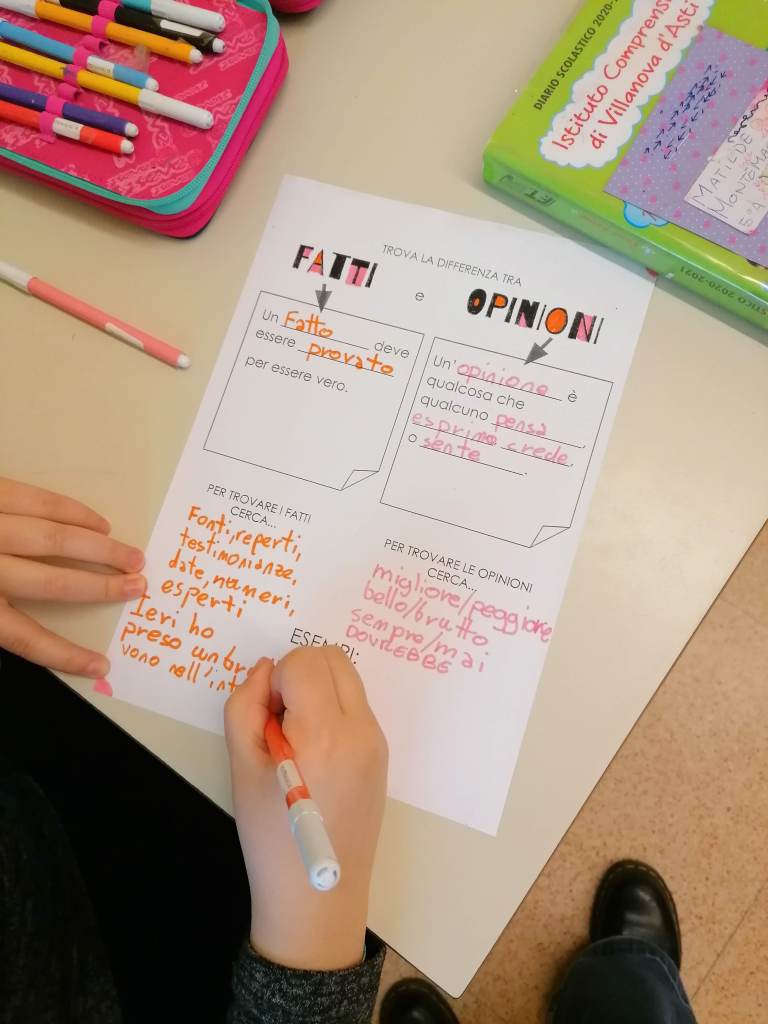 DIARIO SCOLASTICO 2020-2
Istituto Comprensi
di Villanova d'Asti
MATILDE
MONTEMA
5°A
STICO 2020-2021
TROVA LA DIFFERENZA TRA
FATTI e OPINIONI
Un Fatto deve
essere provato
per essere vero.
Un' opinione è
qualcosa che
qualcuno pensa,
esprime crede,
o sente.
PER TROVARE I FATTI
CERCA...
Fonti, reperti,
testimonianze,
date, numeri,
esperti
Ieri ho
preso un br
vono nell'int
PER TROVARE LE OPINIONI
CERCA...
migliore/peggiore
bello/brutto
sempre/mai
DOVREBBE
ESEMPI: